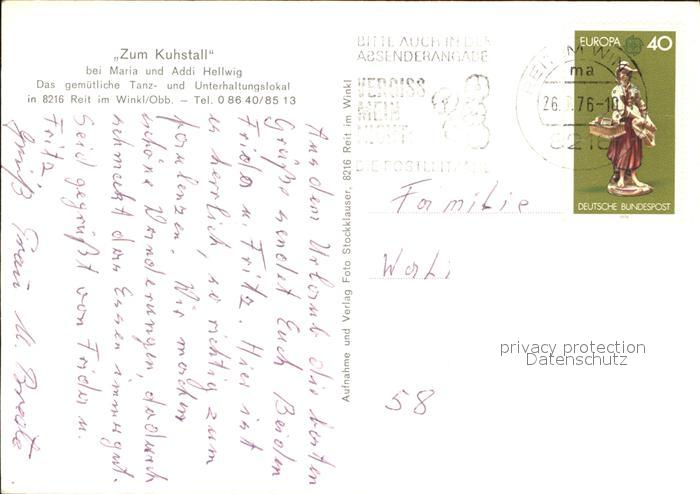 „Zum Kuhstall"
bei Maria und Addi Hellwig
Das gemütliche Tanz- und Unterhaltungslokal
in 8216 Reit im Winkl/Obb. – Tel. 0 86 40/85 13
Aus dem Urlaub die besten
Grüße sendet Euch Beiden
Frida u. Fritz. Hier ist
es herrlich, so richtig zum
faulenzen. Wir machen
schöne Wanderungen, dadurch
schmeckt das Essen immer gut.
Seid gegrüßt von Frida u.
Fritz
Gruß Frau M.
Aufnahme und Verlag Foto Stockklauser, 8216 Reit im Winkl
BITTE AUCH IN DER
ABSENDERANGABE
VERGISS
MEIN
NICHT
DIE POSTLEITZAHL
REIT IM WINKL
ma
76-10
8216
EUROPA 40
DEUTSCHE BUNDESPOST
Familie
58
privacy protection
Datenschutz